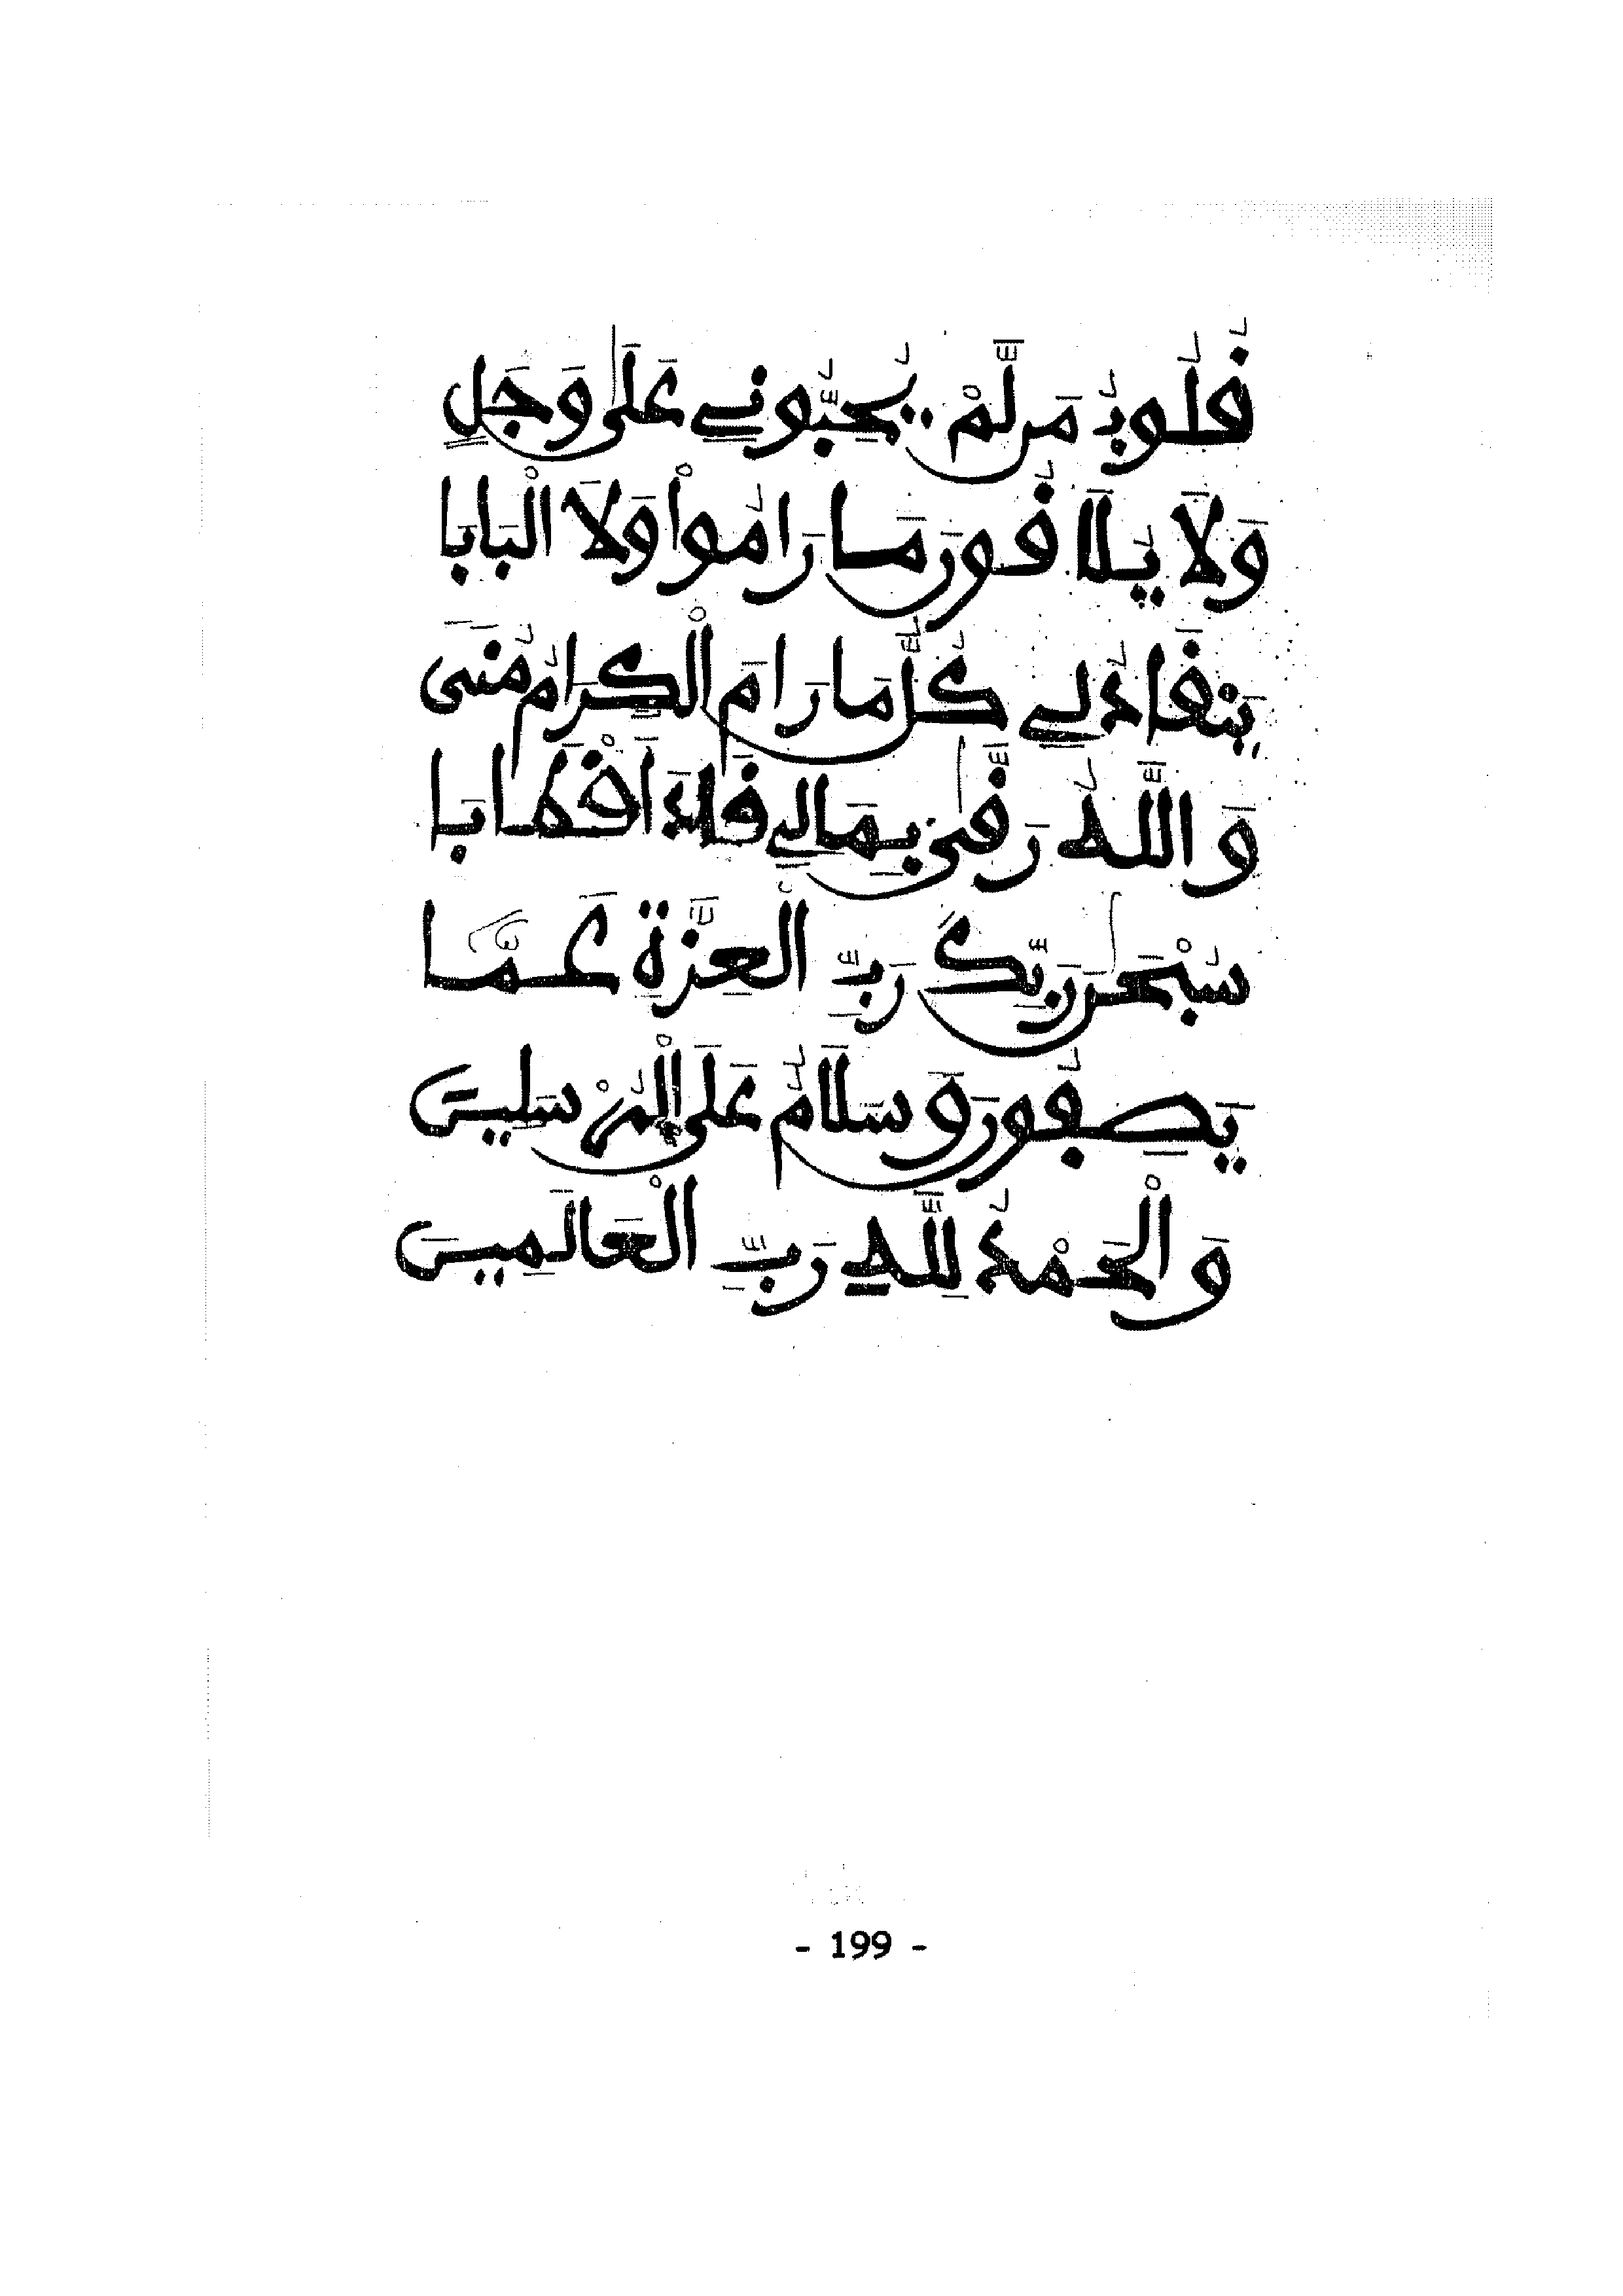 قُلُوبُ مَن لَّمْ يُحِبُّونِي عَلَى وَجَلٍ
وَلَا يُلَاقُونَ مَا رَامُوا وَلَا الْبَابَا
يَنْقَادُ لِي كُلُّ مَا رَامَ الْكِرَامُ مُنًى
وَاللَّهُ رَقَّى بِمَالِي قَادَ أَقْهَابَا
سُبْحَٰنَ رَبِّكَ رَبِّ الْعِزَّةِ عَمَّا
يَصِفُونَ وَسَلَامٌ عَلَى الْمُرْسَلِينَ
وَالْحَمْدُ لِلَّهِ رَبِّ الْعَالَمِينَ
- 199 -